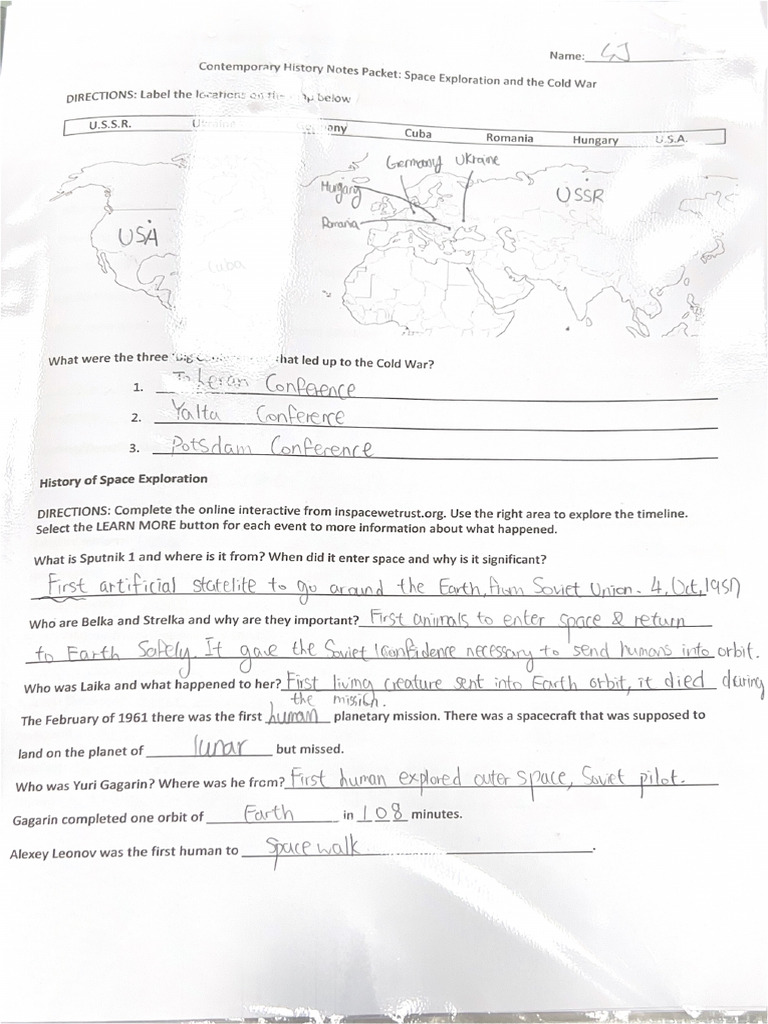 Name: GJ
Contemporary History Notes Packet: Space Exploration and the Cold War
DIRECTIONS: Label the locations on the map below
U.S.S.R. Ukraine Cuba Romania Hungary U.S.A.
Germany Ukraine
Hungary USSR
Romania
USA
Cuba
What were the three "Big that led up to the Cold War?
1. Teheran Conference
2. Yalta Conference
3. Potsdam Conference
History of Space Exploration
DIRECTIONS: Complete the online interactive from inspacewetrust.org. Use the right area to explore the timeline.
Select the LEARN MORE button for each event to more information about what happened.
What is Sputnik 1 and where is it from? When did it enter space and why is it significant?
First artificial statelite to go around the Earth, from Soviet Union. 4, Oct, 1957
Who are Belka and Strelka and why are they important? First animals to enter space & return
to Earth Safely. It gave the Soviet confidence necessary to send humans into orbit.
Who was Laika and what happened to her? First living creature sent into Earth orbit, it died during
the mission.
The February of 1961 there was the first human planetary mission. There was a spacecraft that was supposed to
land on the planet of lunar but missed.
Who was Yuri Gagarin? Where was he from? First human explored outer space, Soviet pilot.
Gagarin completed one orbit of Earth in 108 minutes.
Alexey Leonov was the first human to Spacewalk.